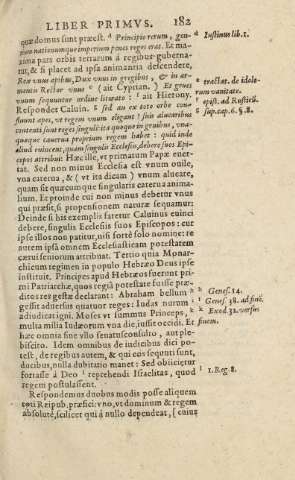 LIBER PRIMVS. 182
quæ domus sunt præest. d Principio rerum, gen-
tium nationumque imperium penes reges erat. Et ma-
xima pars orbis terrarum à regibus guberna-
tur, & si placet ad ipsa animantia descendere,
Rex vnus apibus, Dux vnus in gregibus, & in ar-
mentis Rector vnus e (ait Cyprian.) Et grues
vnam sequuntur ordine literato f ait Hierony.
Respondet Caluin. g sed au ex toto orbe con-
fluunt apes, vt regem vnum eligant? suis aluearibus
contenti sunt reges singuli: ita quoque in gruibus, vna-
quæque caterua proprium regem habet: quid inde
aliud euincent, quam singulis Ecclesijs, debere suos Epi-
scopos attribui? Hæc ille, vt primatum Papæ euer-
tat. Sed non minus Ecclesia est vnum ouile,
vna caterua, & (vt ita dicam) vnum alueare,
quam sit quæcumque singularis caterua anima-
lium. Et proinde cui non minus debetur vnus
qui præsit, si propensionem naturæ sequamur:
Deinde si his exemplis fatetur Caluinus euinci
debere, singulis Ecclesijs suos Episcopos: cur
ipse illos non patitur, nisi fortè solo nomine: re
autem ipsa omnem Ecclesiasticam potestatem
cœtui seniorum attribuat. Tertio quia Monar-
chicum regimen in populo Hebræo Deus ipse
instituit. Principes apud Hebræos fuerunt pri-
mi Patriarchæ, quos regia potestate fuisse præ-
ditos res gestæ declarant: Abraham bellum h
gessit aduersus quatuor reges: Iudas nurum i
adiudicat igni. Moses vt summus Princeps, k
multa milia Iudæorum vna die, iussit occidi. Et
hæc omnia sine vllo senatusconsulto, aut ple-
biscito. Idem omnibus de iudicibus dici po-
test, de regibus autem, & qui eos sequuti sunt,
ducibus, nulla dubitatio manet: Sed obijcietur
fortasse à Deo l reprehendi Israelitas, quod
regem postulassent.
Respondemus duobus modis posse aliquem
toti Reipub. præfici: vno, vt dominum & regem
absolutè, scilicet qui à nullo dependeat, [cuius
d Iustinus lib. 1.
e tractat. de idolo-
rum vanitate.
f epist. ad Rustic.
g sup. cap. 6. §. 8.
h Genes. 14.
i Genes. 38. ad fin.
k Exod. 32. versus
finem.
l 1. Reg. 8.